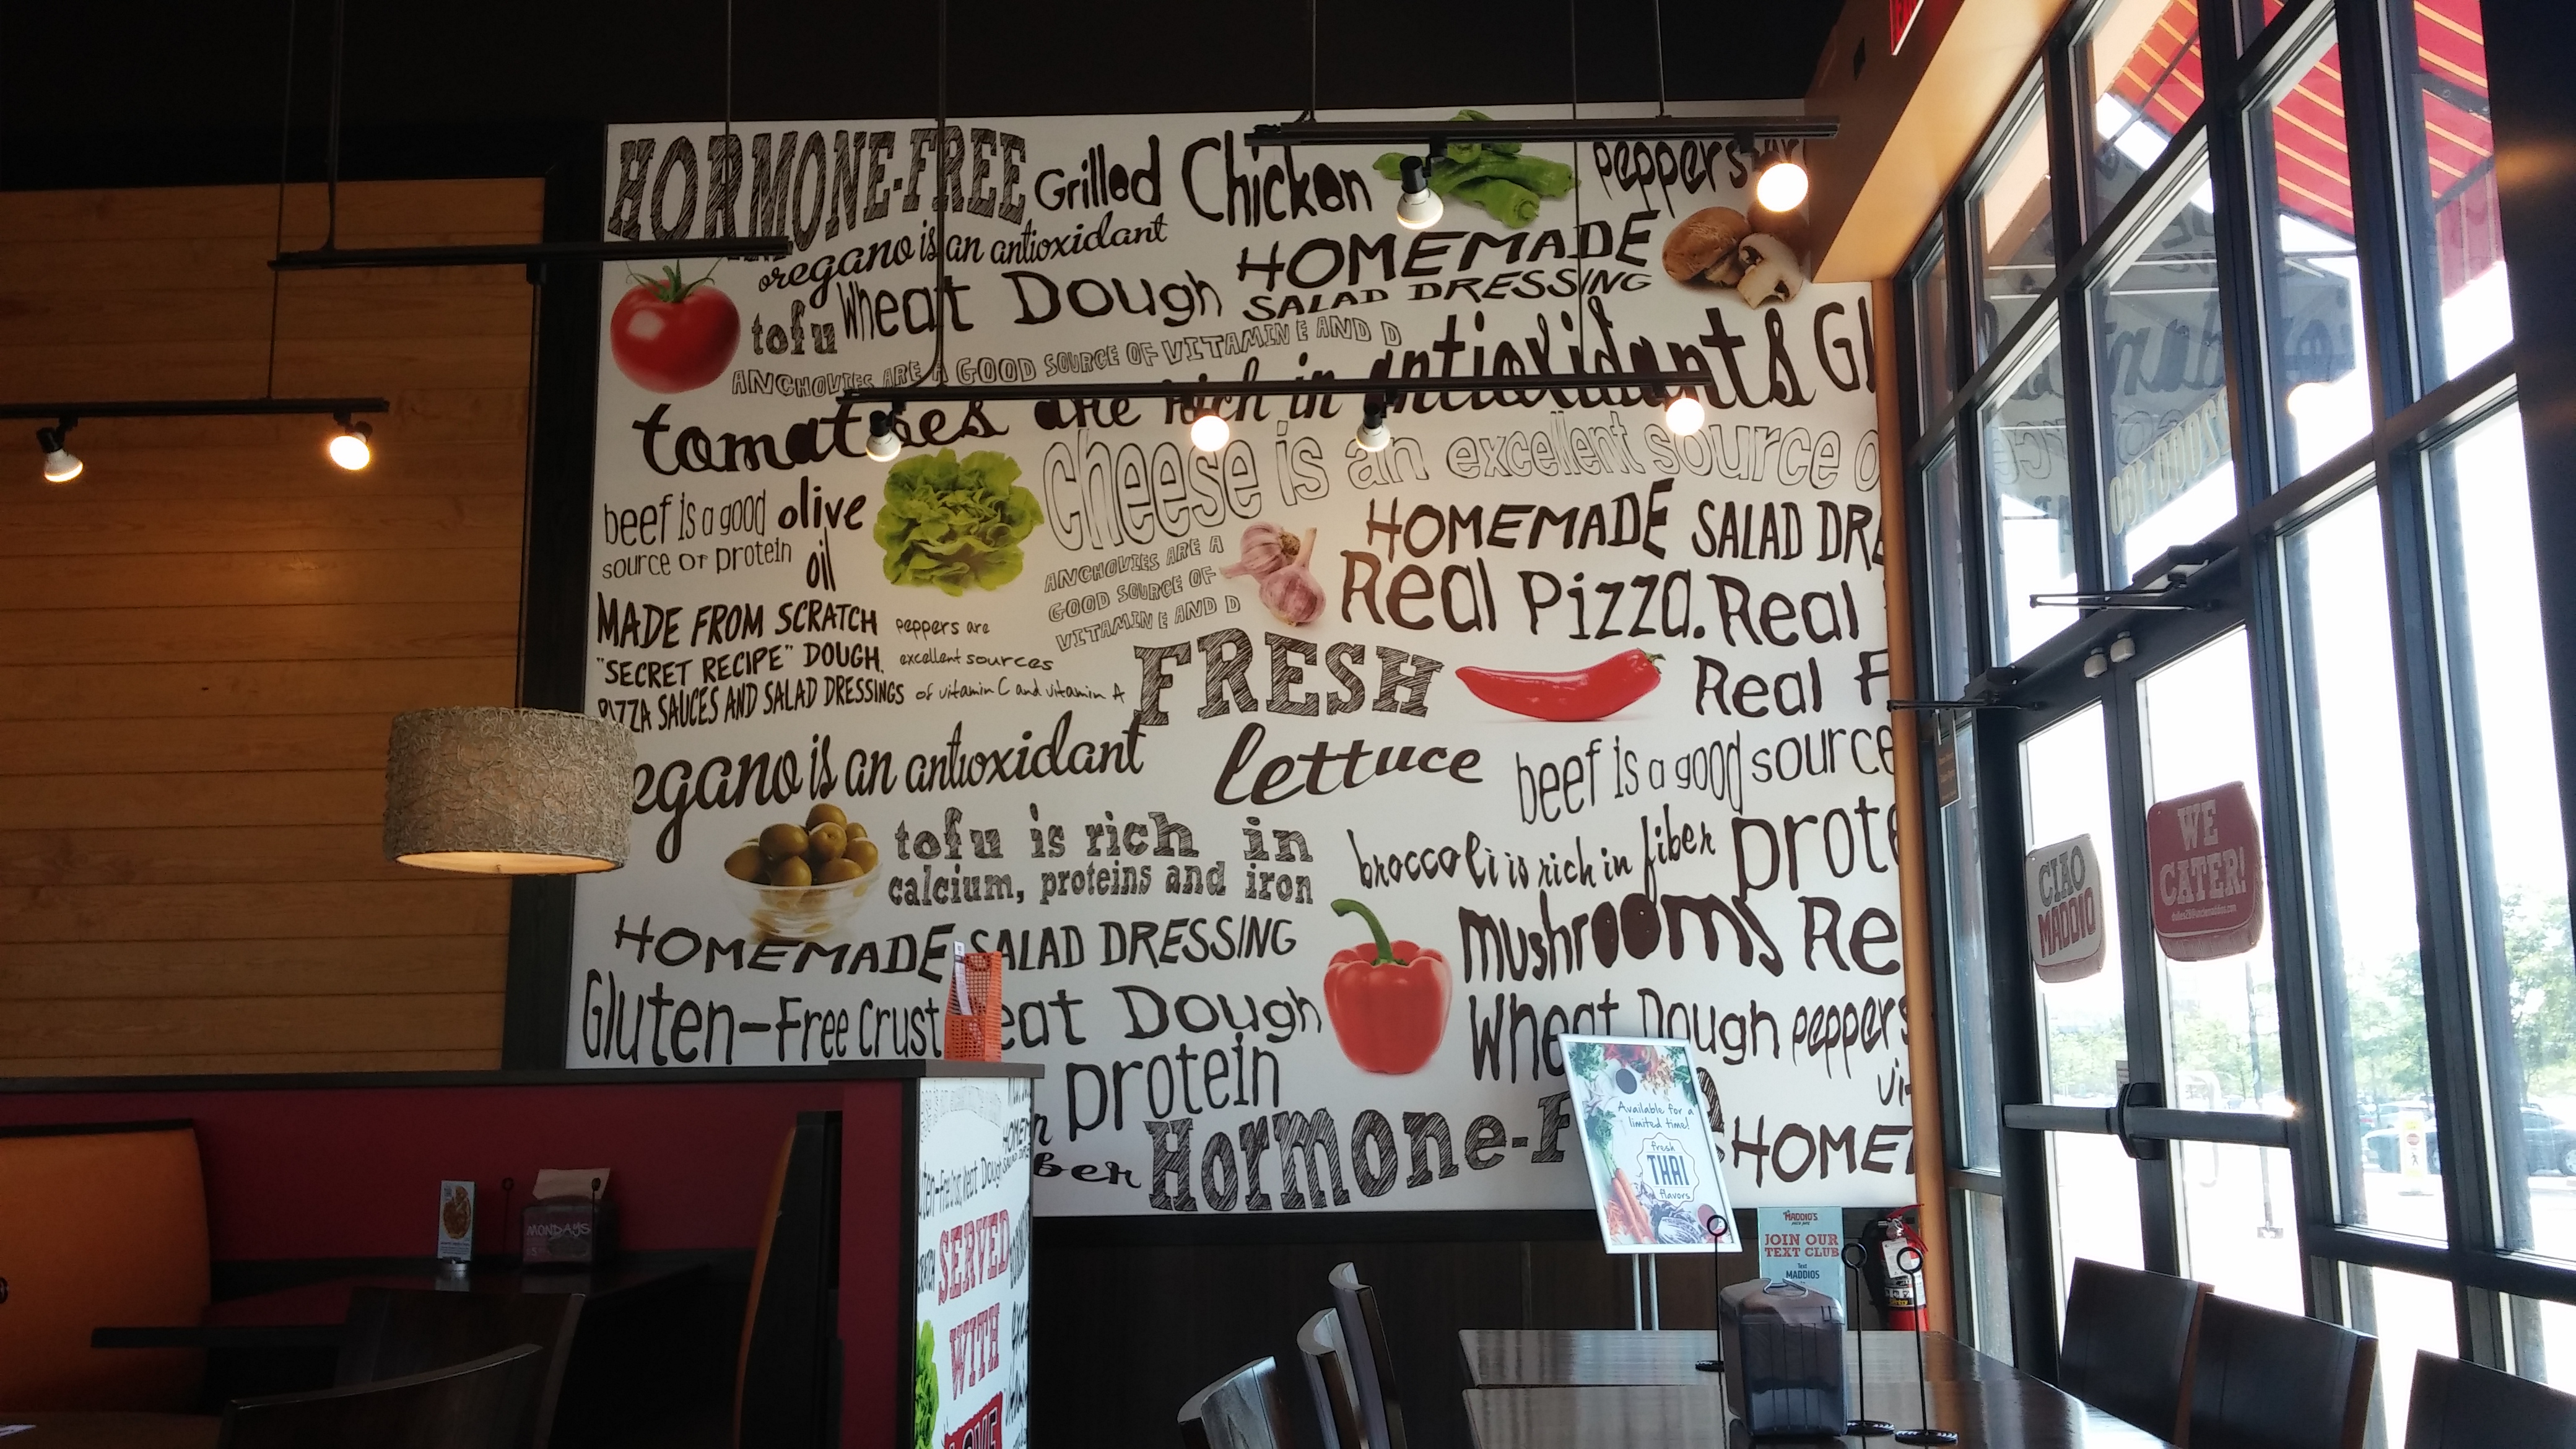 HORMONE-FREE Grilled Chicken peppers
oregano is an antioxidant
HOMEMADE
SALAD DRESSING
tofu Wheat Dough
ANCHOVIES ARE A GOOD SOURCE OF VITAMIN E AND D
tomatoes are rich in antioxidants Gl
cheese is an excellent source o
beef is a good
source of protein
olive
oil
ANCHOVIES ARE A
GOOD SOURCE OF
VITAMIN E AND D
HOMEMADE SALAD DRE
Real Pizza. Real
MADE FROM SCRATCH
"SECRET RECIPE" DOUGH,
PIZZA SAUCES AND SALAD DRESSINGS
peppers are
excellent sources
of vitamin C and vitamin A
FRESH
Real F
egano is an antioxidant
lettuce
beef is a good source
tofu is rich in
calcium, proteins and iron
broccoli is rich in fiber
prote
HOMEMADE SALAD DRESSING
mushrooms Re
Gluten-Free Crust eat Dough
Wheat Dough peppers
protein
vi
ber
Hormone-F
HOME
Available for a
limited time!
fresh
THAI
flavors
MADDIO'S
JOIN OUR
TEXT CLUB
Text
MADDIOS
MONDAYS
SERVED
WITH
CIAO
MADDIO
WE
CATER!